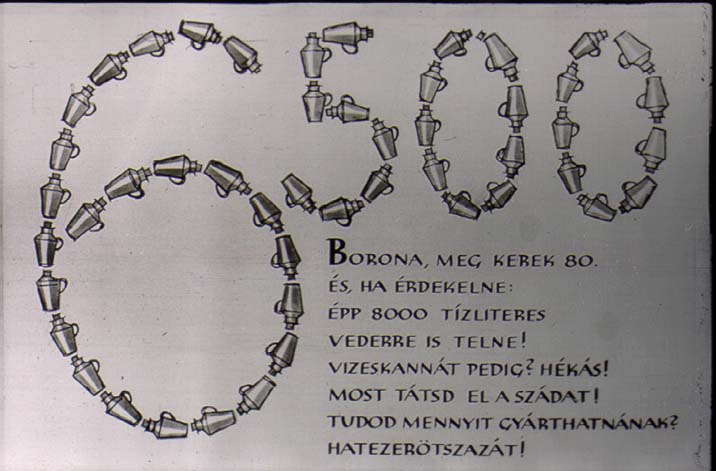 6500
BORONA, MEG KEREK 80.
ÉS, HA ÉRDEKELNE:
ÉPP 8000 TÍZLITERES
VEDERRE IS TELNE!
VIZESKANNÁT PEDIG? HÉKÁS!
MOST TÁTSD EL A SZÁDAT!
TUDOD MENNYIT GYÁRTHATNÁNAK?
HATEZERÖTSZAZÁT!